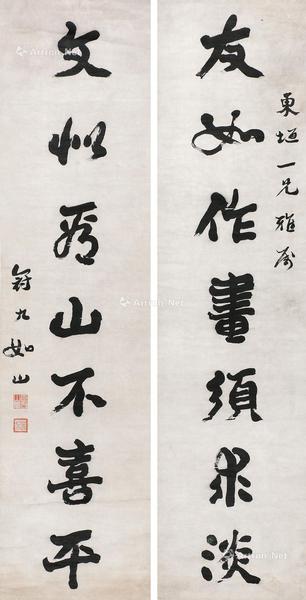 友如作畫須求淡
東垣一兄雅屬
文似看山不喜平
冠九如山
Artron.Net